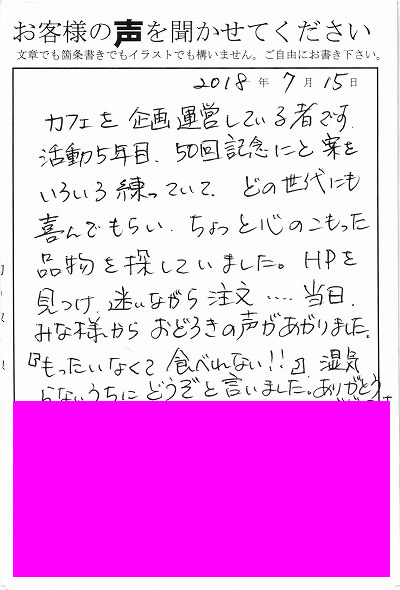 お客様の声を聞かせてください
文章でも箇条書きでもイラストでも構いません。ご自由にお書き下さい。
2018年7月15日
カフェを企画運営している者です
活動5年目、50回記念にと案を
いろいろ練っていて、どの世代にも
喜んでもらい、ちょっと心のこもった
品物を探していました。HPを
見つけ、迷いながら注文‥‥当日、
みな様からおどろきの声があがりました。
『もったいなくて食べれない!!』湿気
らないうちにどうぞと言いました。ありがとう